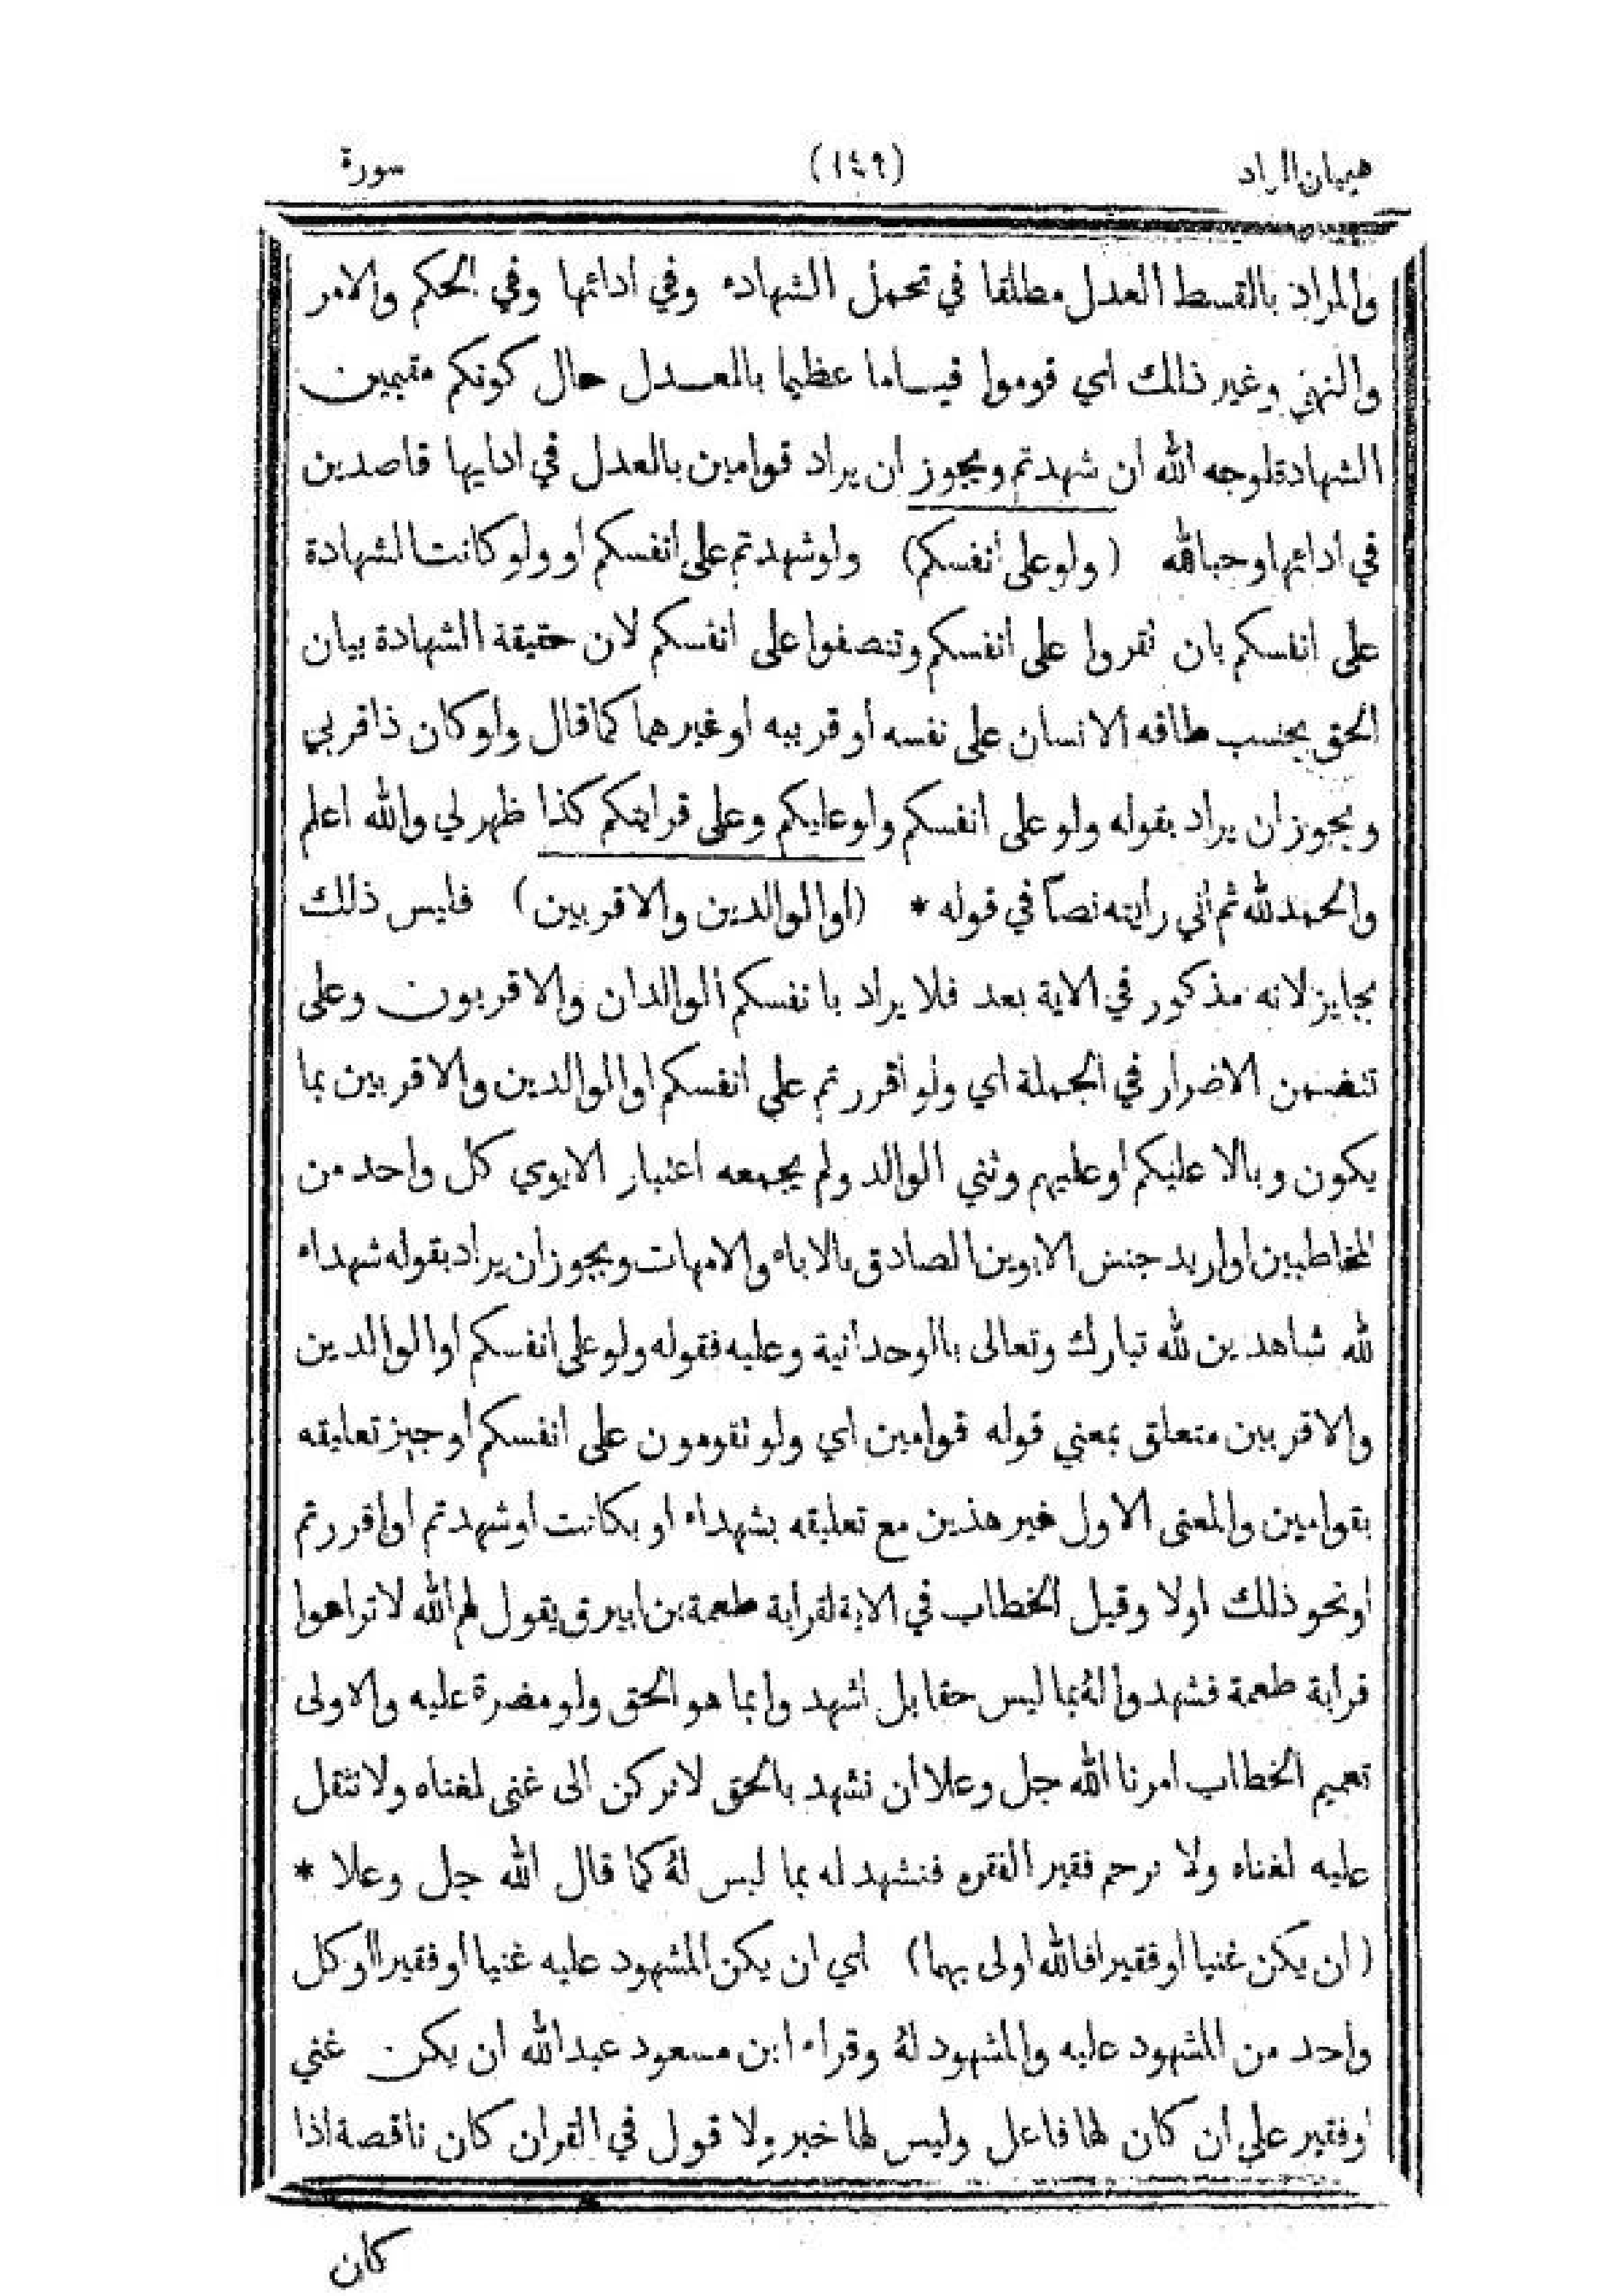 هيميان الزاد (١٤٩) سورة
والمراد بالقسط العدل مطلقا في تحمل الشهادة وفي ادائها وفي الحكم والامر
والنهي وغير ذلك اي قوموا قيـاما عظيما بالعـدل حال كونكم مقيمين
الشهادة لوجه الله ان شهدتم ويجوز ان يراد قوامين بالعدل في ادايها قاصدين
في ادائها وحبا لله (ولو على أنفسكم) ولو شهدتم على انفسكم او ولو كانت الشهادة
على انفسكم بان تقروا على أنفسكم وتنصفوا على انفسكم لان حقيقة الشهادة بيان
الحق بحسب طاقه الانسان على نفسه أو قريبه او غيرهما كما قال ولو كان ذا قربى
ويجوز ان يراد بقوله ولو على انفسكم ولو عليكم وعلى قرابتكم كذا ظهر لي والله اعلم
والحمد لله ثم أني رايته نصاً في قوله * (او الوالدين والاقربين) فليس ذلك
بجايز لانه مذكور في الاية بعد فلا يراد با نفسكم الوالدان والاقربون وعلى
تتضمن الاضرار في الجملة اي ولو أقررتم على انفسكم او الوالدين والاقربين بما
يكون وبالا عليكم او عليهم وثني الوالد ولم يجمعه اعتبار الابوي كل واحد من
المخاطبين او اريد جنس الابوين الصادق بالاباء والامهات ويجوز ان يراد بقوله شهداء
لله شاهدين لله تبارك وتعالى بالوحدانية وعليه فقوله ولو على انفسكم او الوالدين
والاقربين متعلق بمعني قوله قوامين اي ولو تقومون على انفسكم أو جيز تعليقه
بقوامين والمعنى الاول غير هذين مع تعليقه بشهداء او بكانت او شهدتم او اقررتم
أو نحو ذلك اولا وقيل الخطاب في الاية لقرابة طعمة بن ابيرق يقول لهم الله لا تراعوا
قرابة طعمة فشهدوا لهُ بما ليس حقا بل اشهد وابما هو الحق ولو مضرة عليه والاولى
تعميم الخطاب امرنا الله جل وعلا ان نشهد بالحق لا نركن الى غنى لغناه ولا نثقل
عليه لغناه ولا نرحم فقير الفقره فنشهد له بما ليس لهُ كما قال الله جل وعلا *
(ان يكن غنيا أو فقيرا فالله اولى بهما) اي ان يكن المشهود عليه غنيا أو فقيرا او كل
واحد من المشهود عليه والمشهود لهُ وقراء ابن مسعود عبد الله ان يكن غني
أو فقير على ان كان لها فاعل وليس لها خبر ولا قول في القران كان ناقصة اذا
كان